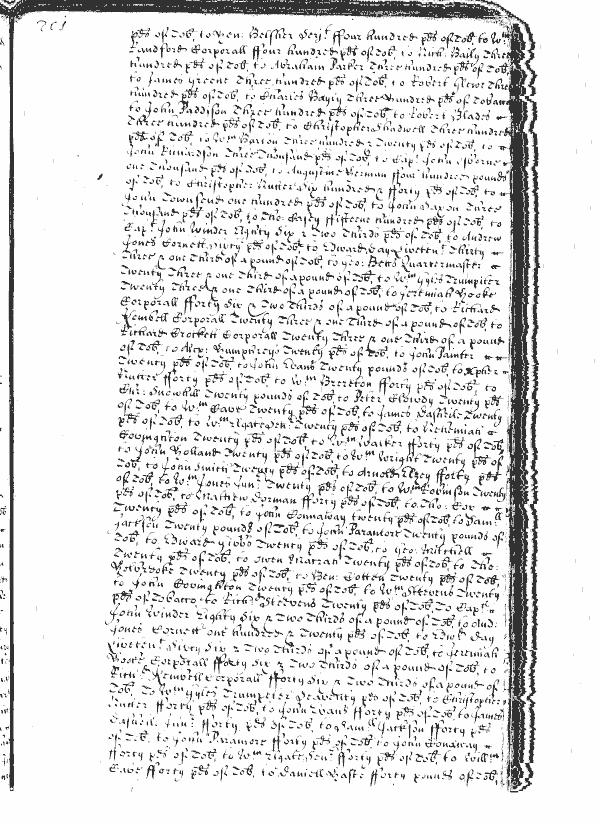 pds of Tob, to Ben: Belsher Serjt. ffour hundred pds of Tob, to Wm.
Landford Corporall ffour hundred pds of Tob, to Rich: Baily Three
hundred pds of Tob, to Abraham Parker Three hundred pds of Tob,
to James Greene Three hundred pds of Tob, to Robert Three
hundred pds of Tob, to Charles Bayly Three hundred pds of Tobacco
to John Paddison Three hundred pds of Tob, to Robert Blades
Three hundred pds of Tob, to Christopher Shadwell Three hundred
pds of Tob, to Wm. Barton Three hundred & Twenty pds of Tob, to
John Richardson Three Thousand pds of Tob, to Capt. John
one Thousand pds of Tob, to Augustine Herman ffour hundred pounds
of Tob, to Christopher Nutter Six hundred & fforty pds of Tob, to
John Townsend one hundred pds of Tob, to John Three
Thousand pds of Tob, to Tho: ffifteene hundred pds of Tob, to
Capt. John Winder Eighty Six & Two Thirds pds of Tob, to Andrew
Jones Cornett Sixty pds of Tob, to Edward Day Thirty
Three & one Third of a pound of Tob, to Geo: Betts Quartermaster
Twenty Three & one Third of a pound of Tob, to Wm. Gyles Trumpiter
Twenty Three & one Third of a pound of Tob, to Jeremiah Hooke
Corporall fforty Six & Two Thirds of a pound of Tob, to Richard
Corporall Twenty Three & one Third of a pound of Tob, to
Richard Crockett Corporall Twenty Three & one Third of a pound
of Tob, to Alexr: Humphreys Twenty pds of Tob, to John Painter
Twenty pds of Tob, to John Evans Twenty pounds of Tob, to Xpher
Nutter fforty pds of Tob, to Wm. Brereton fforty pds of Tob, to
Snowhill Twenty pounds of Tob to Peter Twenty pds
of Tob, to Wm. Cave Twenty pds of Tob, to James Dashiele Twenty
pds of Tob, to Wm. Twenty pds of Tob, to Nehemiah
Covington Twenty pds of Tob, to Wm. Walker fforty pds of Tob,
to John Holland Twenty pds of Tob, to Wm. Wright Twenty pds of
Tob, to John Smith Twenty pds of Tob, to Arnold Elzey fforty pds
of Tob, to Wm. Jones Junr. Twenty pds of Tob, to Wm. Robinson Twenty
pds of Tob, to Matthew Dorman fforty pds of Tob, to Tho: Cox
Twenty pds of Tob, to John Connaway twenty pds of Tob, to Samll.
Jackson Twenty pounds of Tob, to John Paramore Twenty pounds of
Tob, to Edward Gibbs Twenty pds of Tob, to Geo: Mitchell
Twenty pds of Tob, to Owen Twenty pds of Tob, to Tho:
Holbrooke Twenty pds of Tob, to Ben: Cotten Twenty pds of Tob,
to John Covinghton Twenty pds of Tob, to Wm. Stevens Twenty
pds of Tobacco, to Rich: Stevens Twenty pds of Tob, To Capt.
John Winder Eighty Six & Two Thirds of a pound of Tob, to And:
Jones Cornett one hundred & Twenty pds of Tob, to Edwd. Day
Sixty Six & Two Thirds of a pound of Tob, to Jeremiah
Hooke Corporall fforty Six & Two Thirds of a pound of Tob, to
Richd. Corporall fforty Six & Two Thirds of a pound of
Tob, To Wm. Gyles Trumpeter Seaventy pds of Tob, to Christopher
Nutter fforty pds of Tob, to John Evans fforty pds of Tob, to James
Dashiell Junr. fforty pds of Tob, to Samll. Jackson fforty pds
of Tob, to John Paramore fforty pds of Tob, to John Conaway
fforty pds of Tob, to Wm. fforty pds of Tob, to Will:
Cave fforty pds of Tob, to Daniell Haste fforty pounds of Tob,